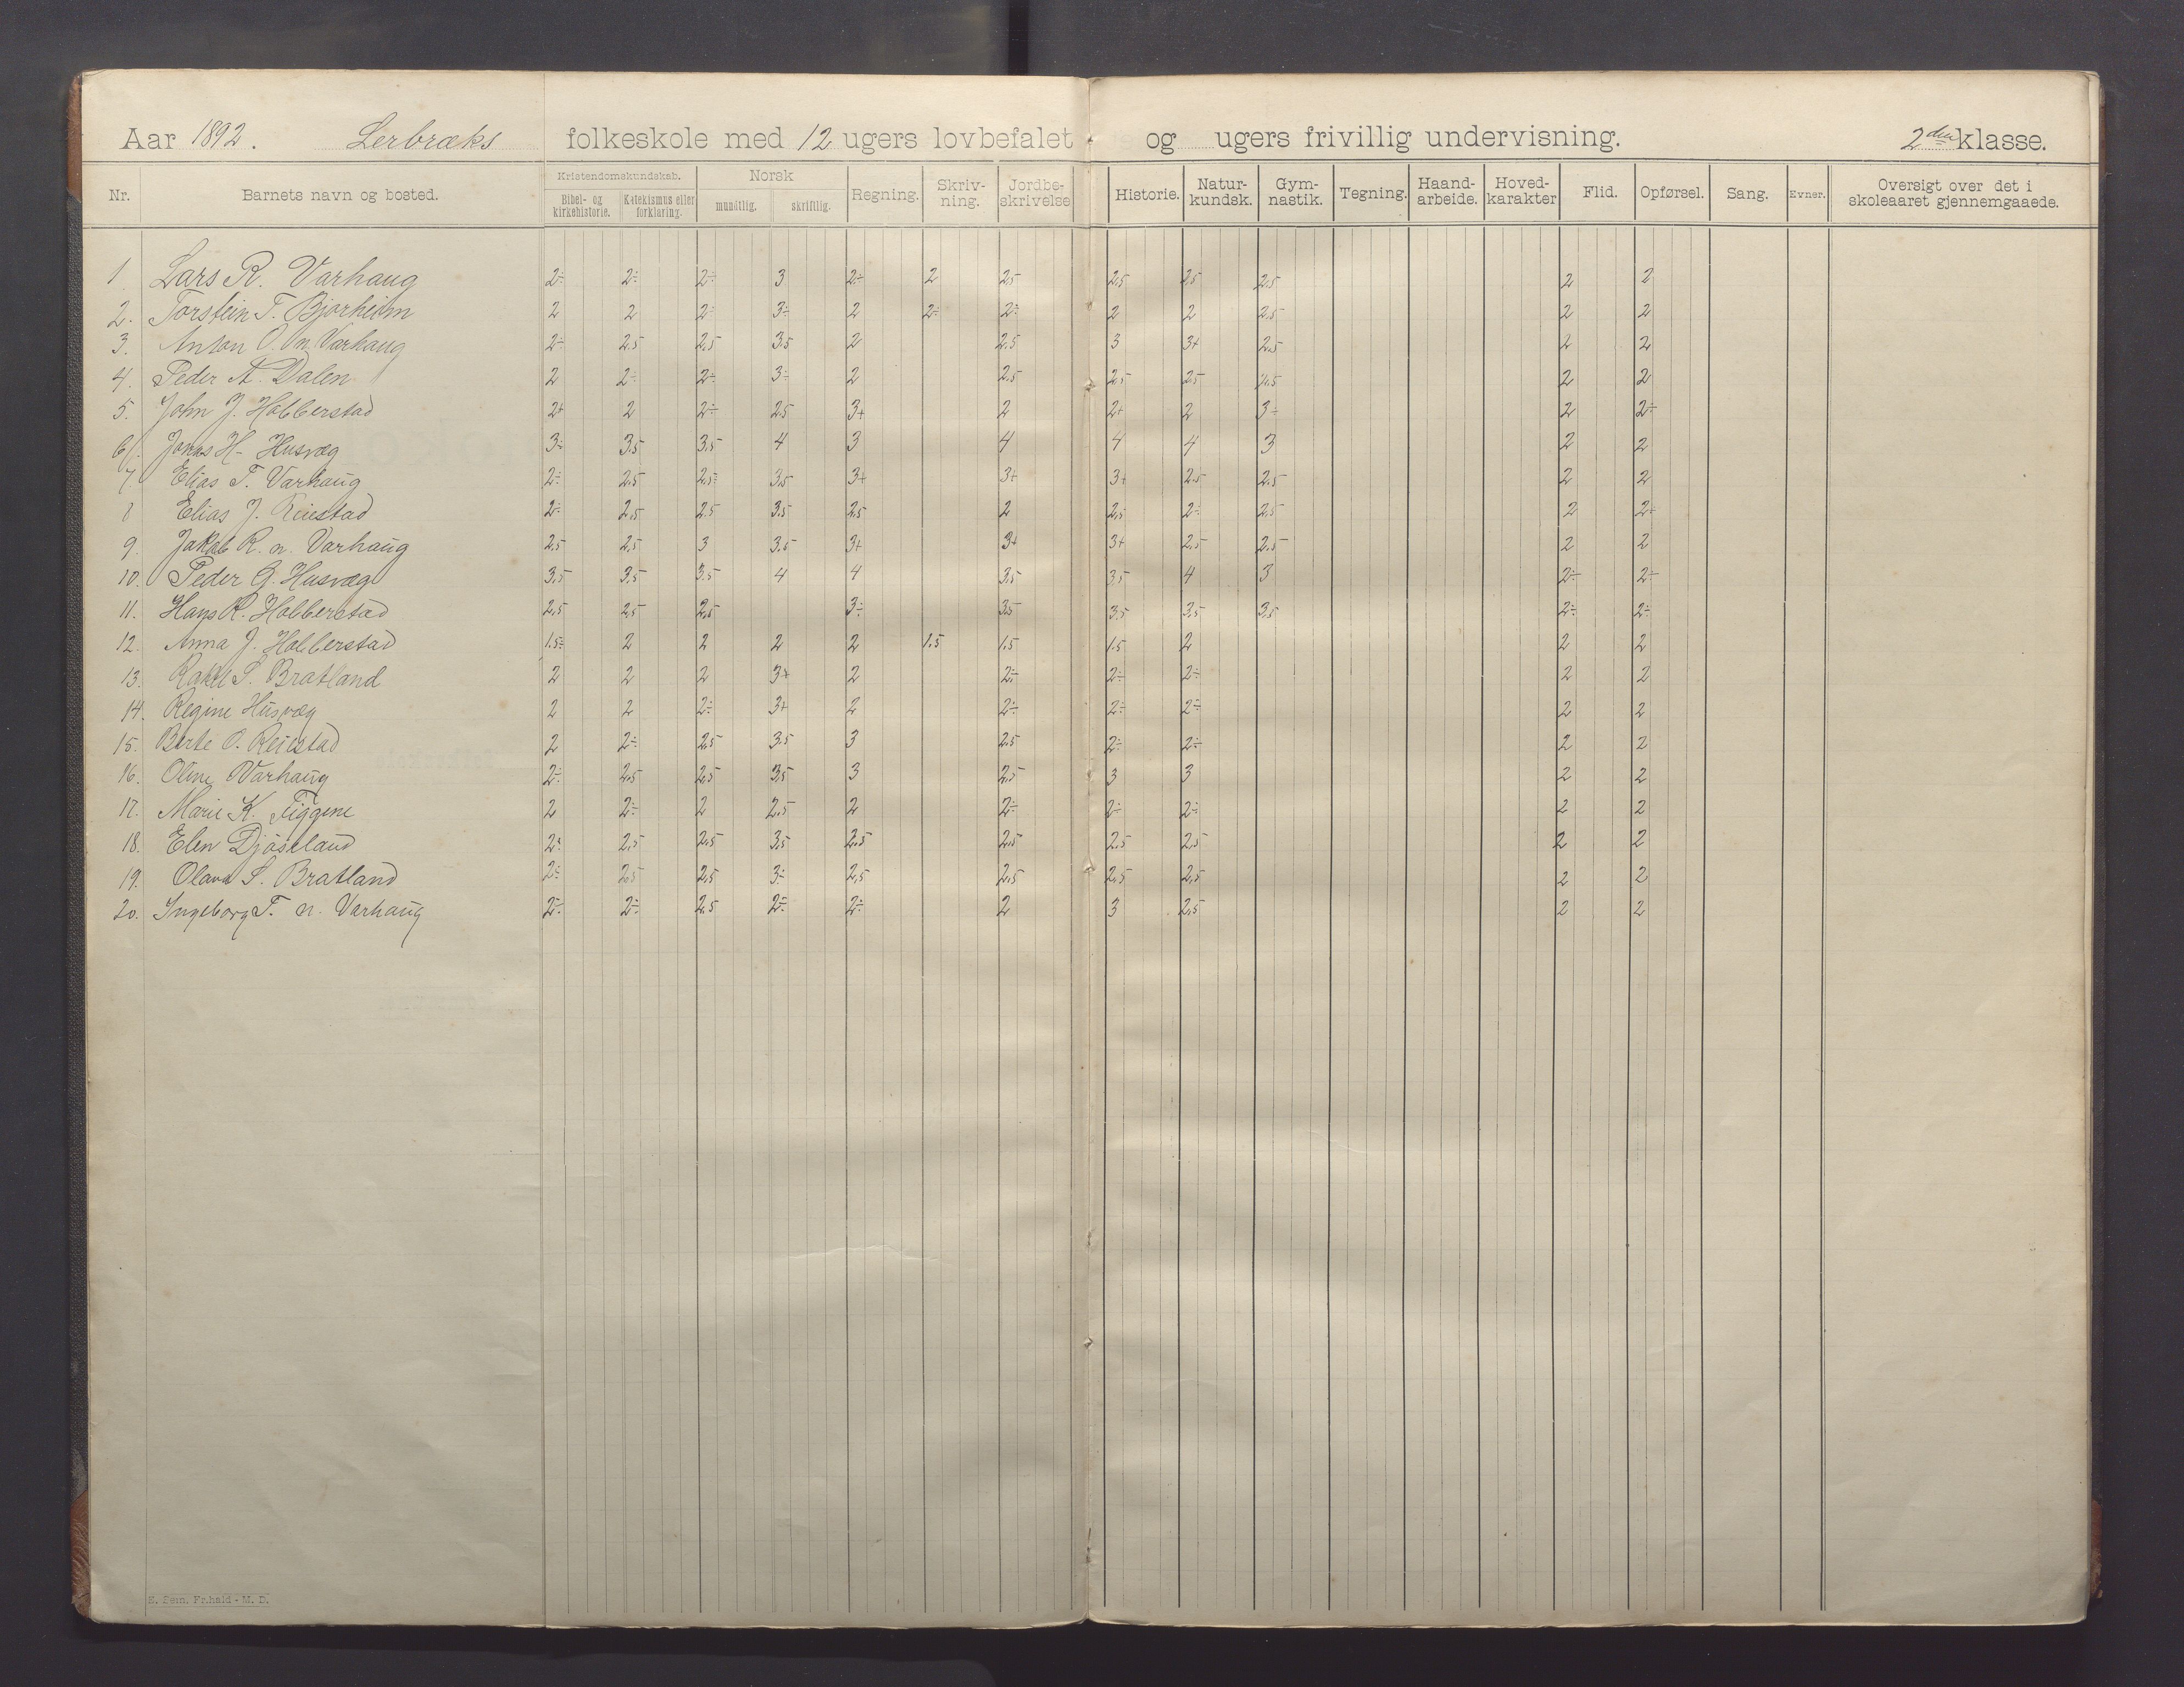 Aar 1892. Lerbræks folkeskole med 12 ugers lovbefalet og ugers frivillig undervisning. 2den klasse.
Nr. Barnets navn og bosted. Kristendomskundskab. Bibel- og kirkehistorie. Katekismus eller forklaring. Norsk mundtlig. skriftlig. Regning. Skriv-ning. Jordbe-skrivelse Historie. Natur-kundsk. Gym-nastik. Tegning. Haand-arbeide. Hoved-karakter Flid. Opførsel. Sang. Evner. Oversigt over det i skoleaaret gjennemgaaede.
1 Lars R. Varhaug 2÷ 2÷ 2÷ 3 2÷ 2 2,5 2,5 2,5 2,5 2 2
2. Torstein T. Bjorheim 2 2 2÷ 3÷ 2 2÷ 2÷ 2 2 2,5 2 2
3. Anton O. n. Varhaug 2÷ 2,5 2,5 3,5 2 2,5 3 3+ 2,5 2 2
4. Peder A. Dalen 2 2÷ 2÷ 3÷ 2 2,5 2,5 2,5 2,5 2 2
5. John J. Hobberstad 2+ 2 2÷ 2,5 3+ 2 2+ 2 3÷ 2 2÷
6. Jonas H. Husvæg 3÷ 3,5 3,5 4 3 4 4 4 3 2 2
7 Elias T. Varhaug 2÷ 2,5 2,5 3,5 3+ 3+ 3+ 2,5 2,5 2 2
8 Elias J. Reiestad 2÷ 2,5 2,5 3,5 2,5 2 2,5 2÷ 2,5 2 2÷
9. Jakob R. n. Varhaug 2,5 2,5 3 3,5 3+ 3+ 3+ 2,5 2,5 2 2
10. Peder G. Husvæg 3,5 3,5 3,5 4 4 3,5 3,5 4 3 2÷ 2÷
11. Hans R. Hobberstad 2,5 2,5 2,5 3÷ 3,5 3,5 3,5 3,5 2÷ 2÷
12. Anna J. Hobberstad 1,5÷ 2 2 2 2 1,5 1,5 1,5 2 2 2
13. Rakel S. Bratland 2 2 2 3+ 2 2÷ 2÷ 2÷ 2 2
14. Regine Husvæg 2 2 2÷ 3+ 2 2÷ 2÷ 2÷ 2 2
15. Berte O. Reiestad 2 2÷ 2,5 3,5 3 2,5 2÷ 2÷ 2 2
16. Oline Varhaug 2÷ 2,5 2,5 3,5 3 2,5 3 3 2 2
17. Marie K. Tiggene 2 2÷ 2 2,5 2 2÷ 2÷ 2÷ 2 2
18. Elen Djøseland 2÷ 2,5 2,5 3,5 2,5 2,5 2,5 2,5 2 2
19. Olava S. Bratland 2÷ 2,5 2,5 3÷ 2,5 2,5 2,5 2,5 2 2
20. Ingeborg T. n. Varhaug 2÷ 2÷ 2,5 2÷ 2÷ 2 3 2,5 2 2
E. Sem. Fr.hald - M. D.